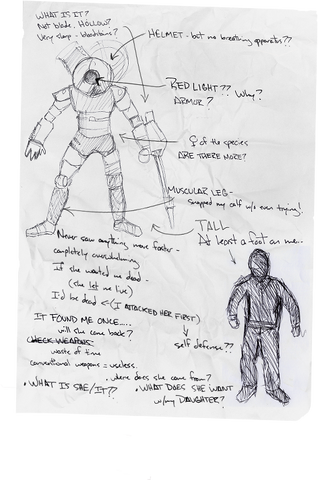 WHAT IS IT?
Not blade. HOLLOW?
Very sharp -
HELMET - but no breathing apparatus??
RED LIGHT?? Why?
ARMOR?
♀ of the species
ARE THERE MORE?
MUSCULAR LEG -
snapped my calf w/o even trying!
TALL
At least a foot on me...
Never saw anything move faster -
completely overwhelming
If she wanted me dead -
(she let me live)
I'd be dead <- (I ATTACKED HER FIRST)
self defense??
IT FOUND ME ONCE....
will she come back?
CHECK WEAPONS:
waste of time
conventional weapons = useless.
• where does she come from?
• WHAT IS SHE/IT??
• WHAT DOES SHE WANT
w/my DAUGHTER?